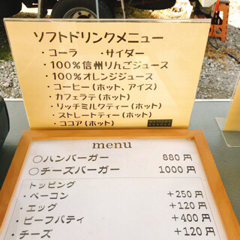 ソフトドリンクメニュー
・コーラ ・サイダー
・100%信州りんごジュース
・100%オレンジジュース
・コーヒー(ホット、アイス)
・カフェラテ(ホット)
・リッチミルクティー(ホット)
・ストレートティー(ホット)
・ココア(ホット)
menu
○ハンバーガー 880円
○チーズバーガー 1000円
トッピング
・ベーコン +250円
・エッグ +120円
・ビーフパティ +400円
・チーズ +120円